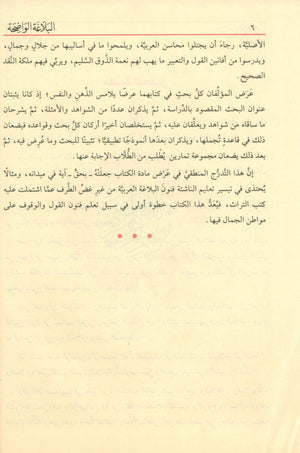 ٦ البَلَاغَة الوَاضِحَة
الأصليَّة، رجاءَ أن يجتلوا محاسن العربيَّة، ويلمحوا ما في أساليبها من جلالٍ وجمالٍ،
ويدرسوا من أفانين القول والتعبير ما يهب لهم نعمة الذَّوق السَّليم، ويربّي فيهم ملكة النَّقد
الصحيح.
عَرَض المؤلِّفان كلَّ بحثٍ في كتابهما عرضًا يلامس الذِّهن والنفس؛ إذ كانا يثبتان
عنوان البحث المقصود بالدِّراسة، ثمَّ يذكران عددًا من الشواهد والأمثلة، ثمَّ يشرحان
ما ساقاه من شواهد ويعلِّقان عليه، ثمَّ يستخلصان أخيرًا أركان كلِّ بحث وقواعده فيضعان
ذلك في قاعدةٍ تُجملها، ويذكران بعدَها أنموذجًا تطبيقيًّا؛ تثبيتًا للبحث وما عُرِض فيه، ثمَّ
بعد ذلك يضعان مجموعة تمارين يُطلب من الطُّلاب الإجابة عنها.
إنَّ هذا التَّدرُّج المنطقيَّ في عَرْض مادة الكتاب جعلَتْهُ ـ بحقٍّ ـ آية في ميدانه، ومثالًا
يُحتذى في تيسير تعليم الناشئة فنونَ البلاغة العربيَّة من غير غضِّ الطَّرف عمَّا اشتملت عليه
كتب التراث، فيُعَدُّ هذا الكتاب خطوة أولى في سبيل تعلم فنون القول والوقوف على
مواطن الجمال فيها.